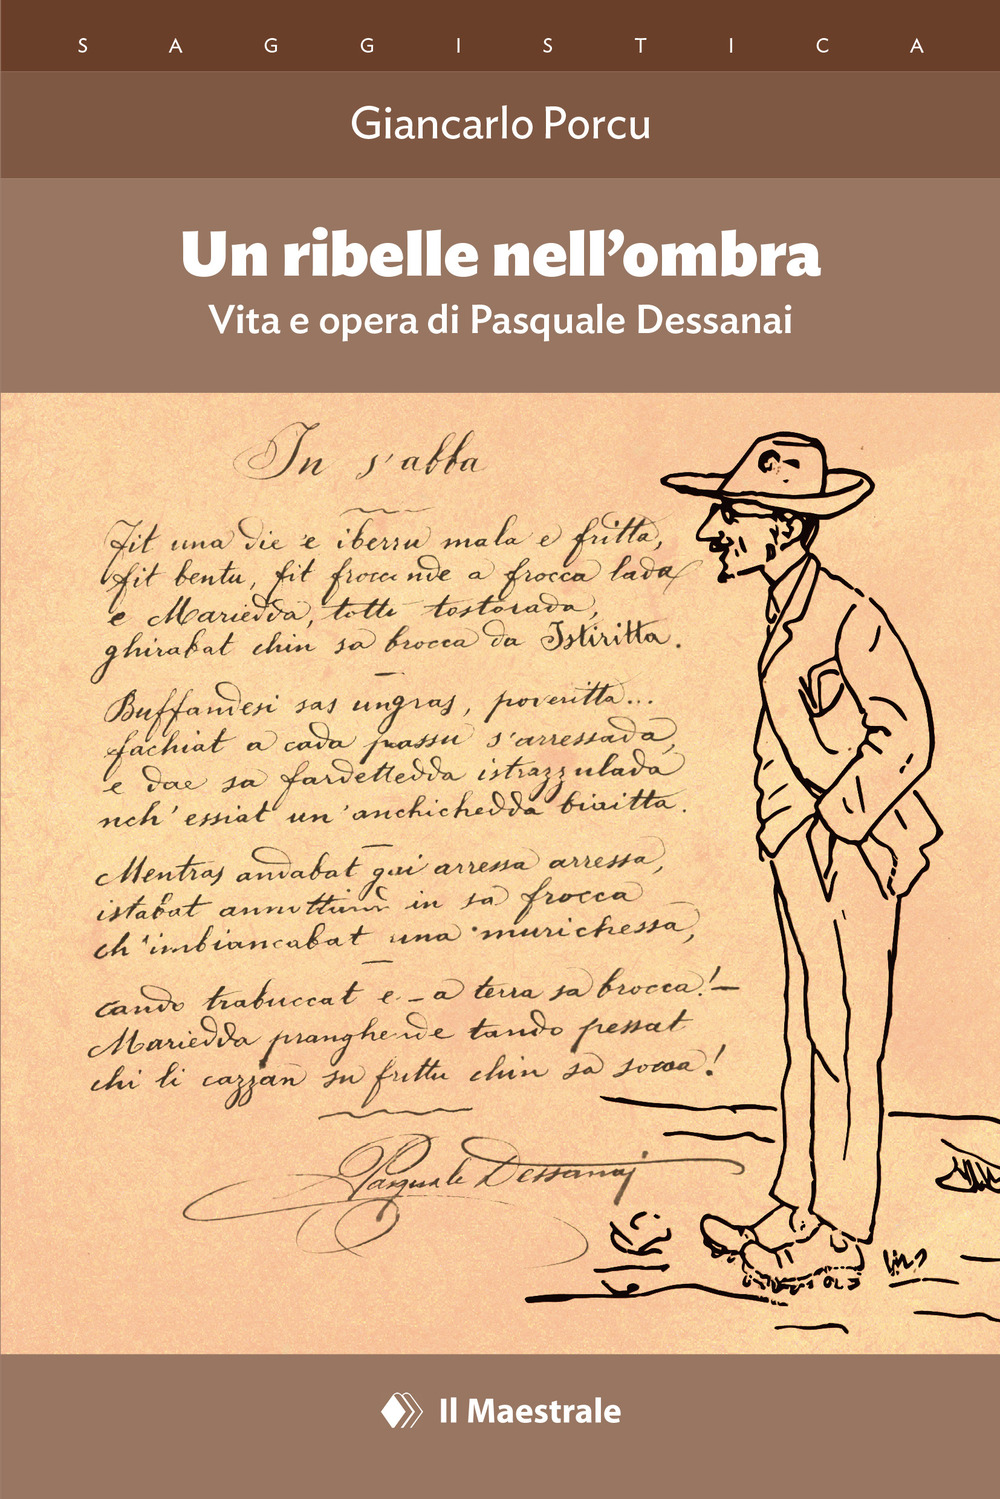 SAGGISTICA
Giancarlo Porcu
Un ribelle nell'ombra
Vita e opera di Pasquale Dessanai
In s'abba
Fit una die 'e iberru mala e fritta,
fit bentu, fit froccande a frocca lada
e Mariedda, totta tostorada,
ghirabat chin sa brocca da Istiritta.
Buffandesi sas ungras, poveritta...
fachiat a cada passu s'arressada,
e dae sa fardettedda istrazzulada
nch'essiat un'anchichedda biaitta.
Mentras andabat gai arressa arressa,
istabat annottande in sa frocca
ch'imbiancabat una murichessa,
cando trabuccat e - a terra sa brocca! -
Mariedda pranghende tando pessat
chi li cazzan su frittu chin sa socca!
Pasquale Dessanaj
Il Maestrale